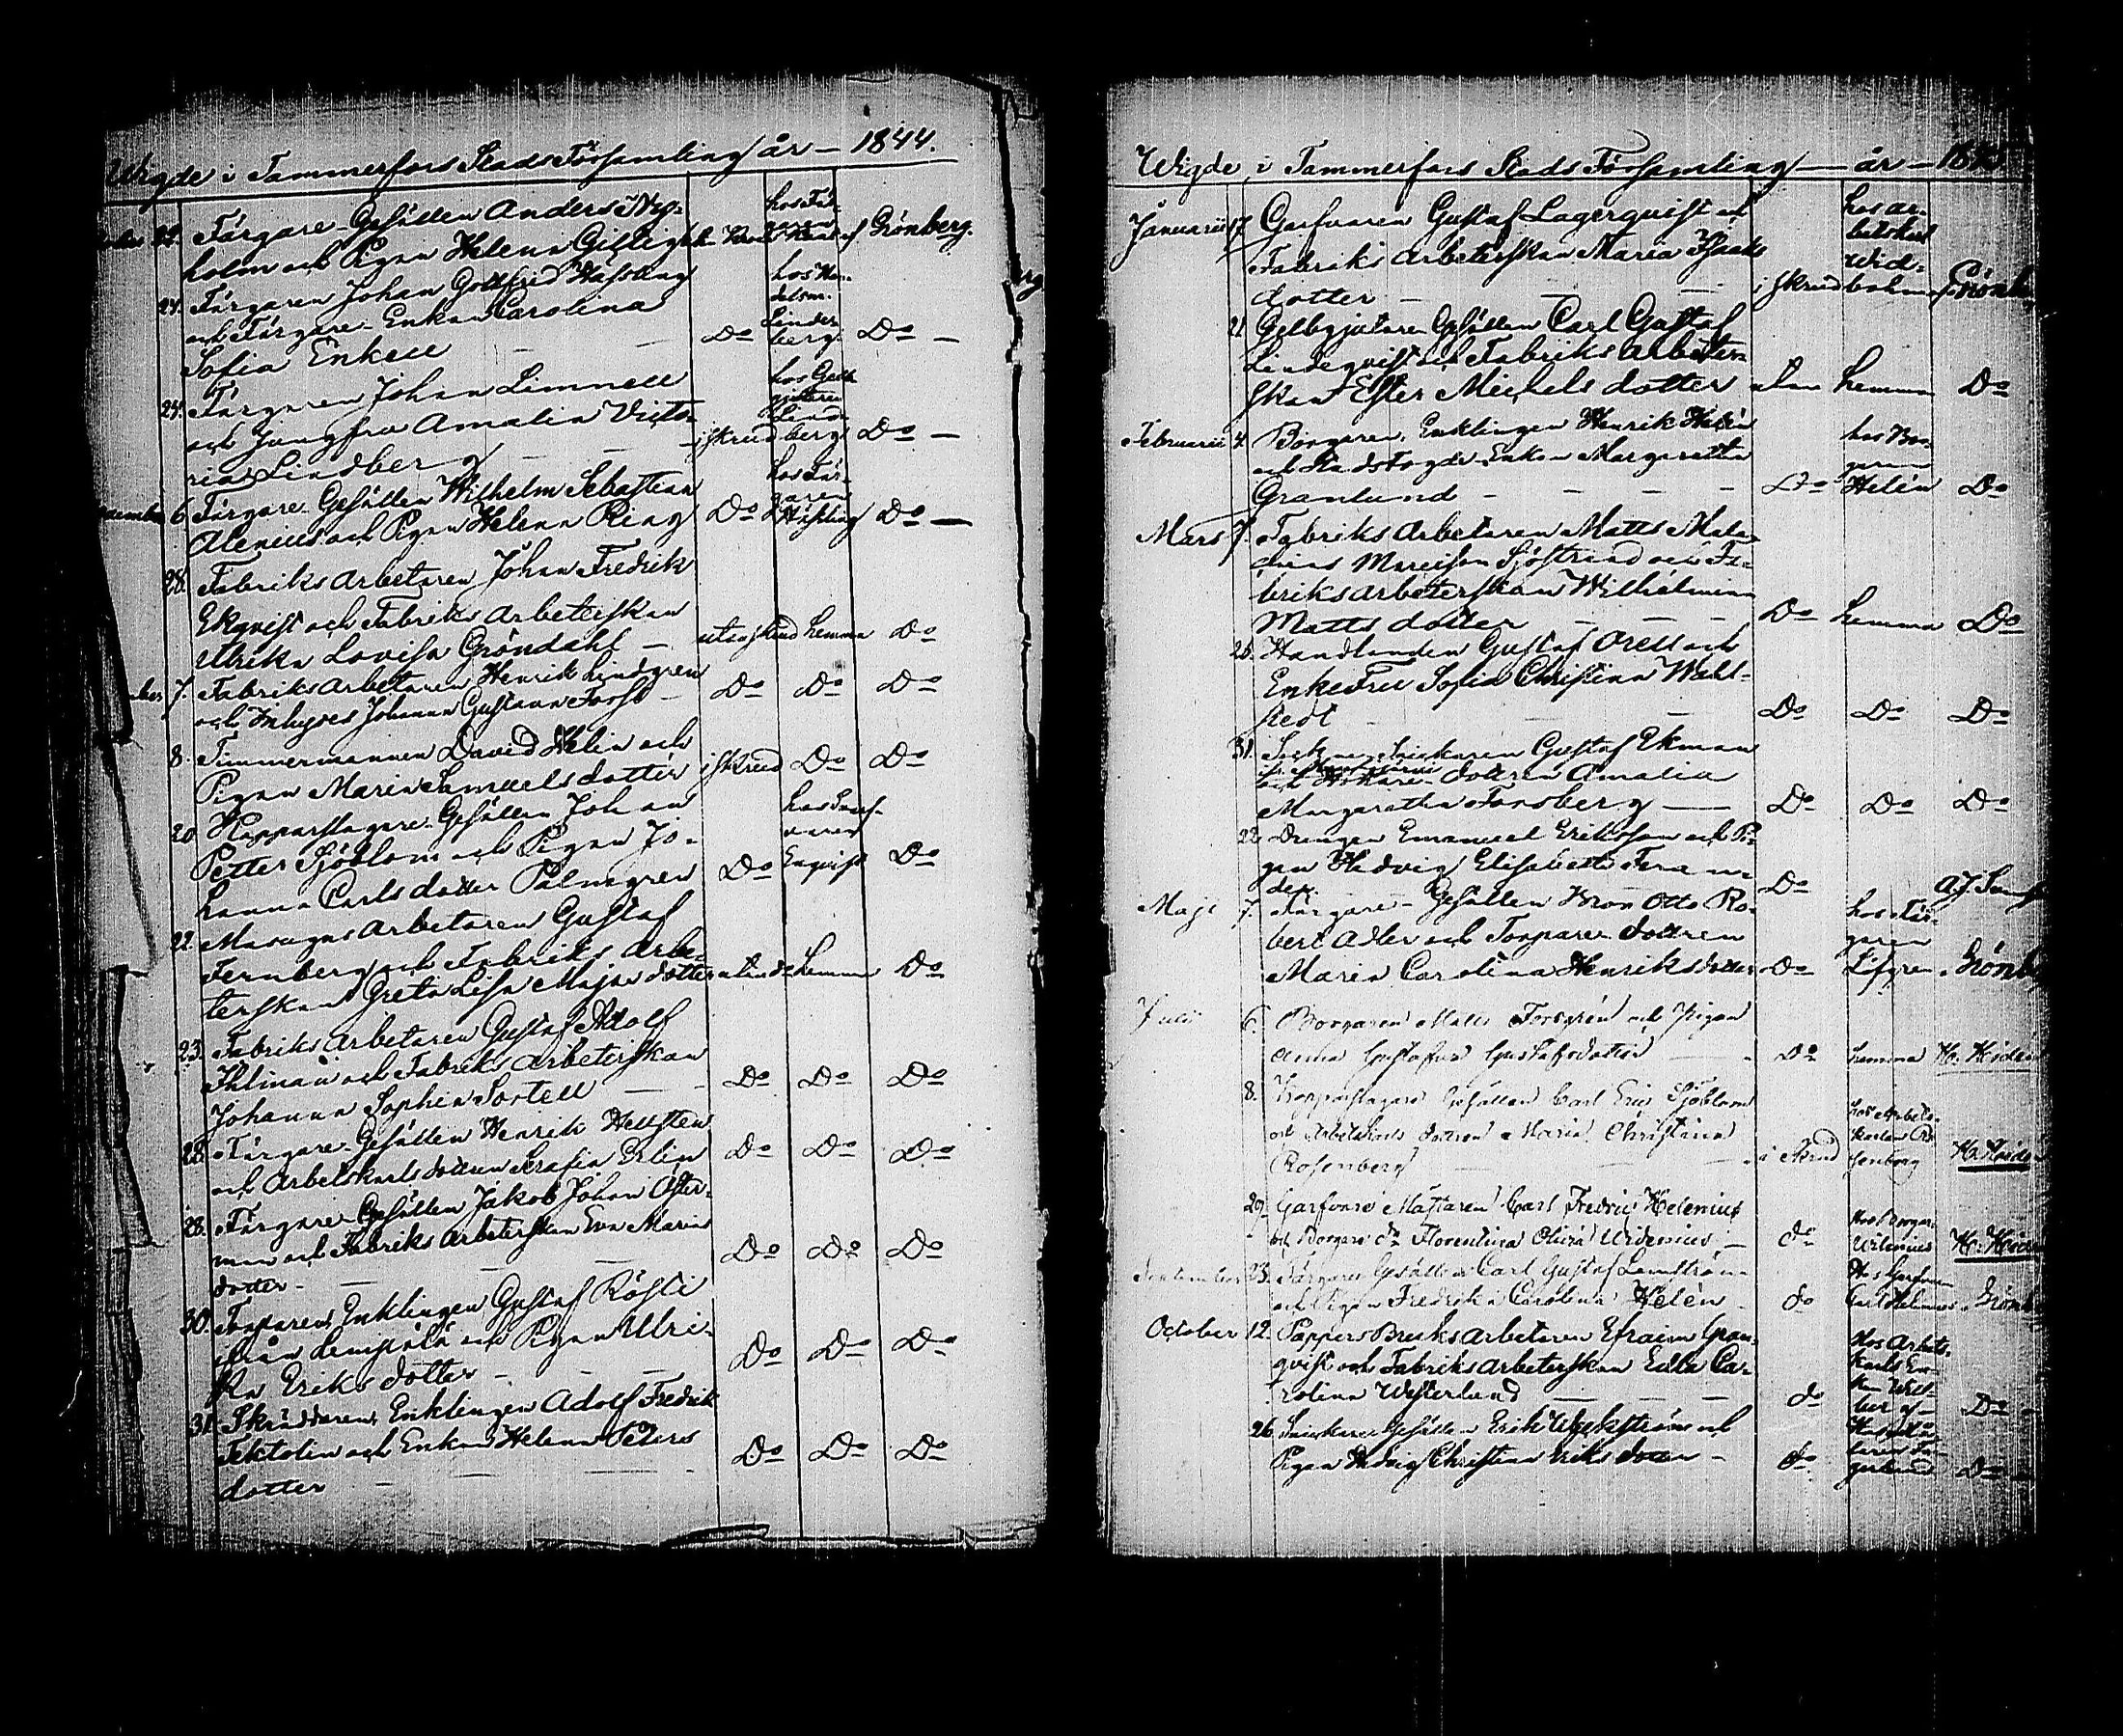 Wigde i Tammerfors Stads Församling år — 1844.
22. Färgare-Gesällen Anders Ny-
holm och Pigan Helena
hos Fär-
af Grönberg.
24. Färgaren Johan Gottfried Hassling
och Färgare-Enkan Carolina
Sofia Enkell — — Do
hos Han-
delsm.
Linder-
berg
Do —
24. Färgaren Johan Limnell
och Jungfru Amalia Victo-
ria Lindberg — — i skrud
hos Gelb-
gjutaren
Lind-
berg
Do —
6. Färgare-Gesällen Wilhelm Sebastian
Alenius och Pigan Helena Ring Do
hos Fär-
garen
Hassling
Do —
28. Fabriks Arbetaren Johan Fredrik
Ekqvist och Fabriks Arbeterskan
Ulrika Lovisa Gröndahl — utan skrud hemma Do
7. Fabriks Arbetaren Henrik Lindgren
och Inhyses Johanna Gustava Forss — Do Do Do
8. Timmermannen David Helin och
Pigan Maria Samuelsdotter i skrud Do Do
20. Kopparslagare-Gesällen Johan
Petter Sjöblom och Pigan Jo-
hanna Carlsdotter Palmgren Do
Enqvist Do
22. Masugns Arbetaren Gustaf
Fernberg och Fabriks Arbe-
terskan Greta Lisa Majasdotter hemma Do
23. Fabriks Arbetaren Gustaf Adolf
och Fabriks Arbeterskan
Johanna Sophia Sortell — Do Do Do
28. Färgare-Gesällen Henrik Hellsten
och Arbetskarls dottren Serafia Do Do Do
28. Färgare-Gesällen Jakob Johan Öster-
man och Fabriks Arbeterskan Eva Maria
dotter — Do Do Do
30. Torparen, Enklingen Gustaf Rösti
ifrån Lempälä och Pigan Ulri-
ka Eriksdotter — Do Do Do
31. Skräddaren, Enklingen Adolf Fredrik
Tektolin och Enkan Helena Peters
dotter — Do Do Do
Wigde i Tammerfors Stads Församling — år —
Januarii 17. Garfvaren Gustaf Lagerqvist och
Fabriks Arbeterskan Maria Isaaks
dotter — — i skrud
hos ar-
betskarl
Wid-
bohm
af Grönb
21. Gelbgjutare Gesällen Carl Gustaf
Lindeqvist och Fabriks Arbeter-
skan Ester Michelsdotter utan hemma Do
Februarii 4. Borgaren, Enklingen Henrik Helén
och Stadsfogde Enkan Margaretha
Granlund — — — Do
hos Bor-
garen
Helén
Do
Mars 7. Fabriks Arbetaren Matts Mata-
Sjöstrand och Fa-
briks Arbeterskan Wilhelmina
Mattsdotter — — Do hemma Do
26. Handlanden Gustaf Orell och
EnkeFru Sofia Christina Wahl-
stedt — — Do Do Do
31. Gustaf Ekman
dottren Amalia
Margaretha Forsberg — Do Do Do
22. Drengen Emanuel Eriksson och Pi-
gan Hedvig Elisabeth
Do
Maji 7. Färgare-Gesällen Otto Ro-
bert Adler och Torpare dottren
Maria Carolina Henriksdotter Do
hos Fär-
garen
Löfgren
Grönb
Julii 6. Borgaren Matts Forsgrén och Pigan
Anna Gustafva Gustafsdotter — Do hemma
8. Kopparslagare Gesällen Carl Eric Sjöblom
och Arbetskarls dottren Maria Christina
Rosenberg — — i skrud
hos Arbets-
karlen Ro-
senberg
29. Garfvare Mästaren Carl Fredric Helenius
och Borgare do Florentina Olivia Widenius — do
Hos Borgar.
September 23. Färgare Gesällen Carl Gustaf Lemström
och Pigan Fredrika Carolina Helén do
Hos Garfva-
Carl Helenius
Grönb
October 12. Pappersbruks Arbetaren Efraim Gran-
qvist och Fabriks Arbeterskan Edla Ca-
rolina Westerlund — — do
Hos Arbets-
karls En-
kan
Do
26. Snickare Gesällen Erik Weckström och
Pigan Hedvig Christina Eriksdotter — do
Do